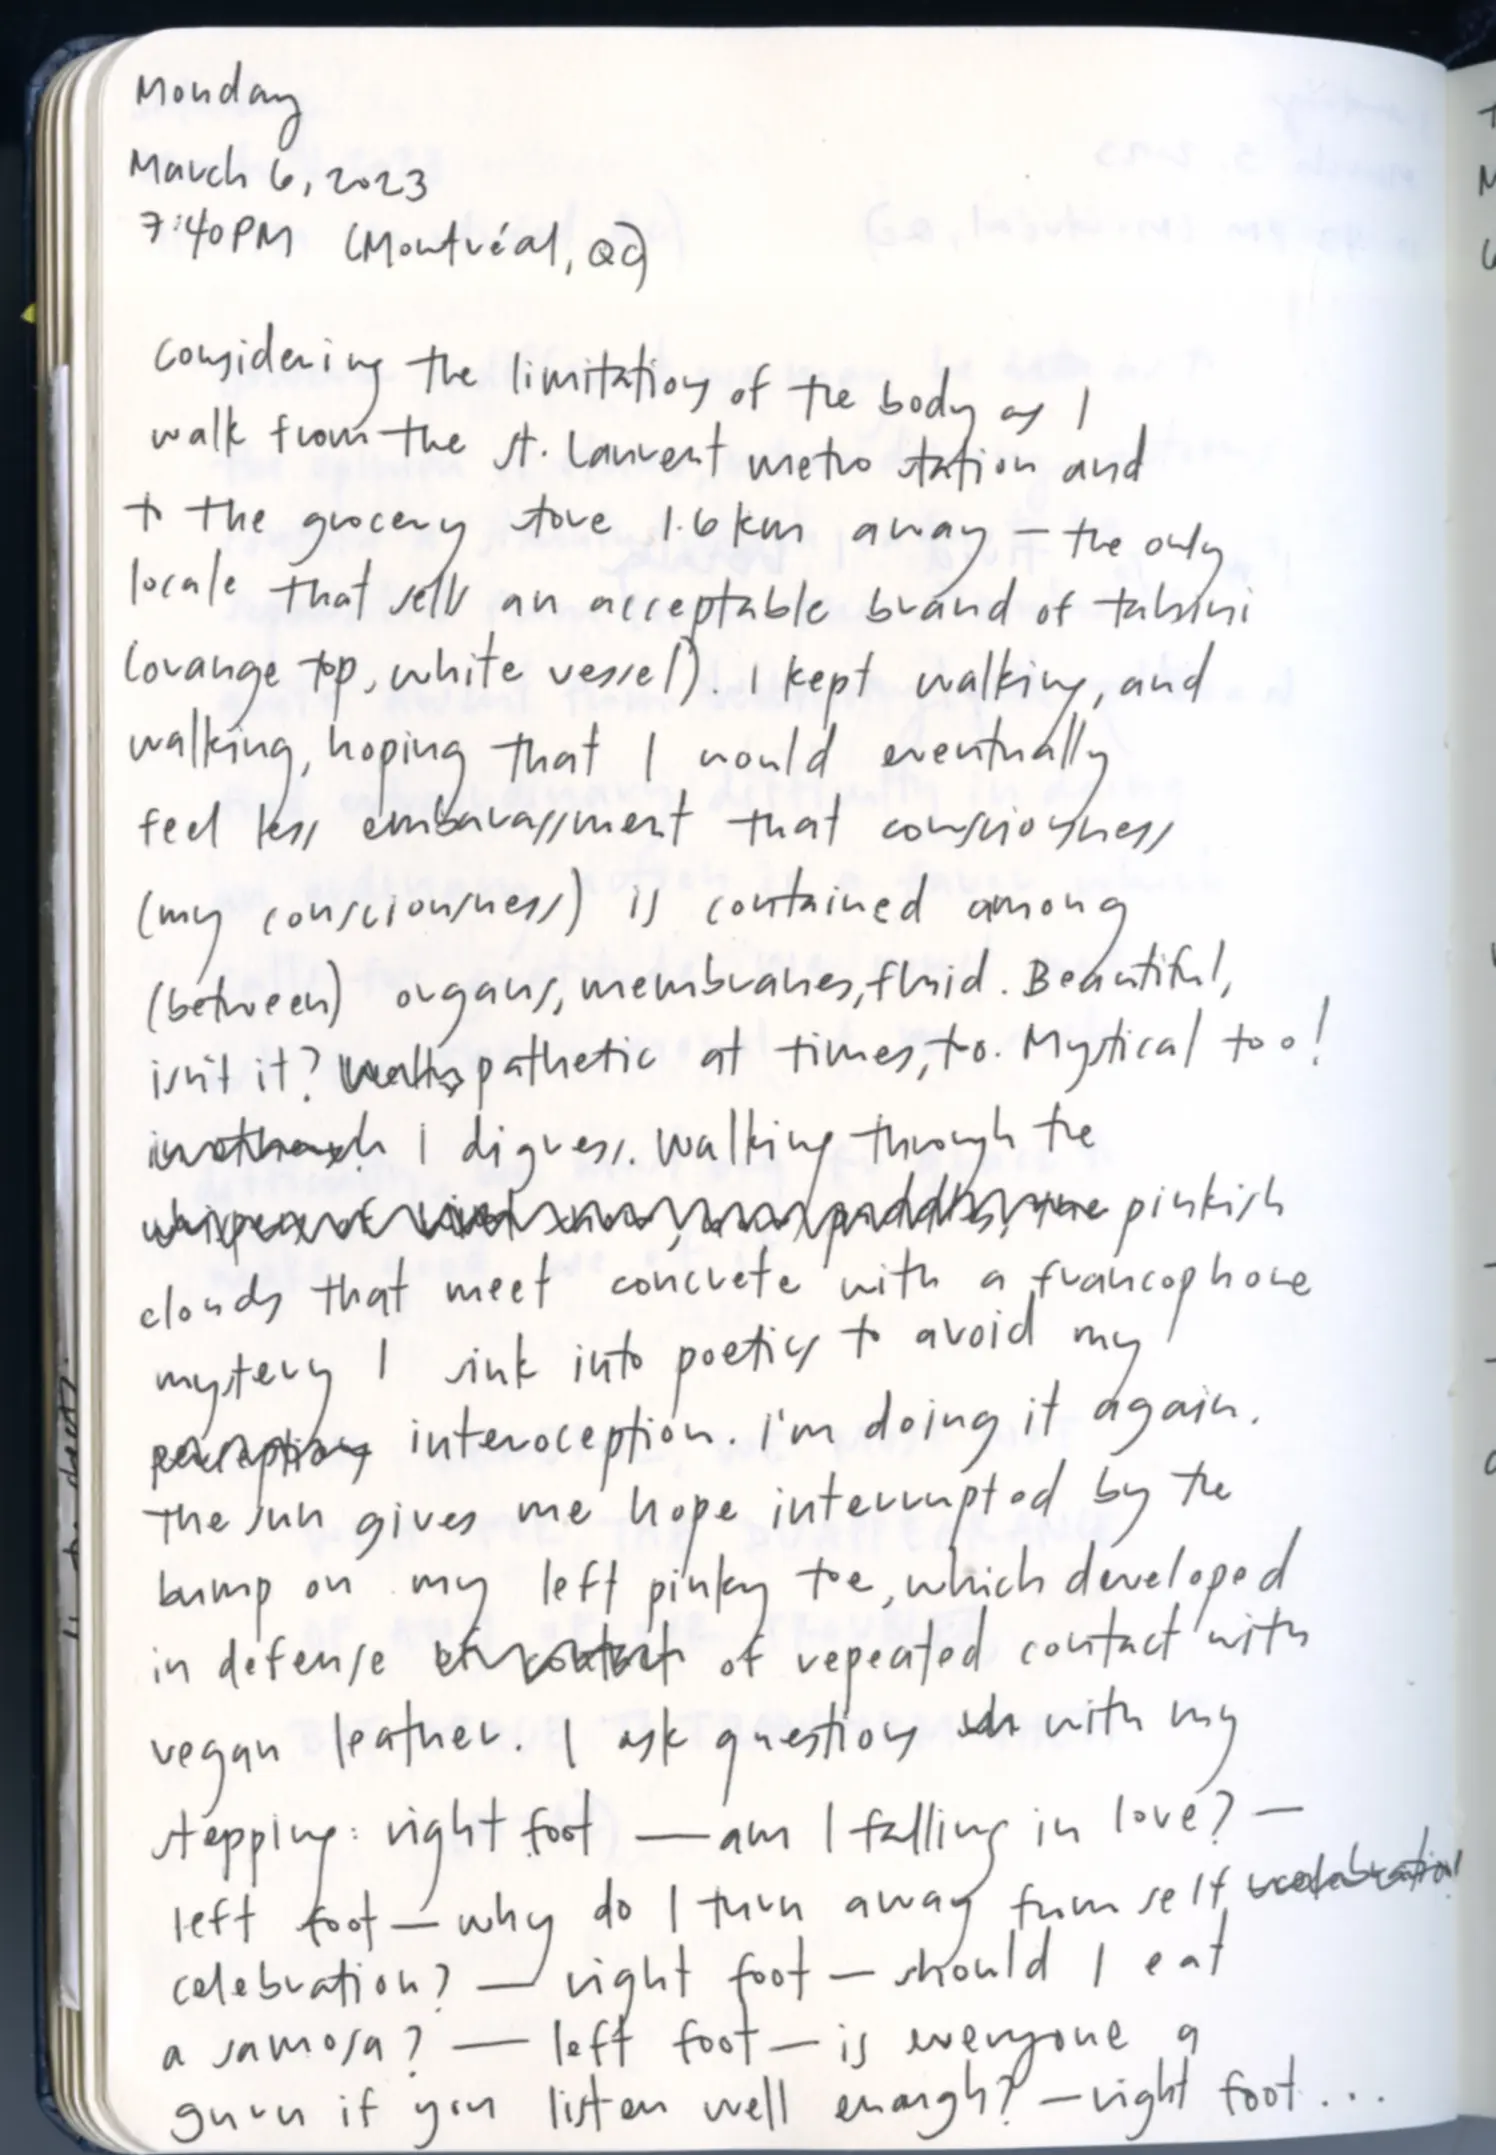 Monday
March 6, 2023
7:40PM (Montréal, QC)
Considering the limitations of the body as I
walk from the St. Laurent metro station and
to the grocery store 1.6 km away – the only
locale that sells an acceptable brand of tahini
(orange top, white vessel). I kept walking, and
walking, hoping that I would eventually
feel less embarassment that consciousness
(my consciousness) is contained among
(between) organs, membranes, fluid. Beautiful,
isn't it? pathetic at times, to. Mystical too!
I digress. Walking through the
pinkish
clouds that meet concrete with a francophone
mystery I sink into poetics to avoid my
perceptions interoception. I'm doing it again.
The sun gives me hope interrupted by the
bump on my left pinky toe, which developed
in defense of contact of repeated contact with
vegan leather. I ask questions with my
stepping: right foot — am I falling in love? —
left foot — why do I turn away from self
celebration? — right foot — should I eat
a samosa? — left foot — is everyone a
guru if you listen well enough? — right foot...